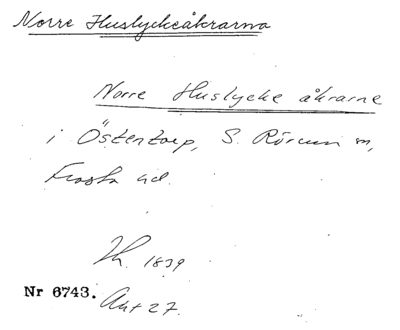 Norre Huslyckeåkrarna
Norre Huslycke åkrarne
i Östentorp, S. Rörum sn,
Frosta hd.
Lk. 1839
Nr 6743.
Akt 27.